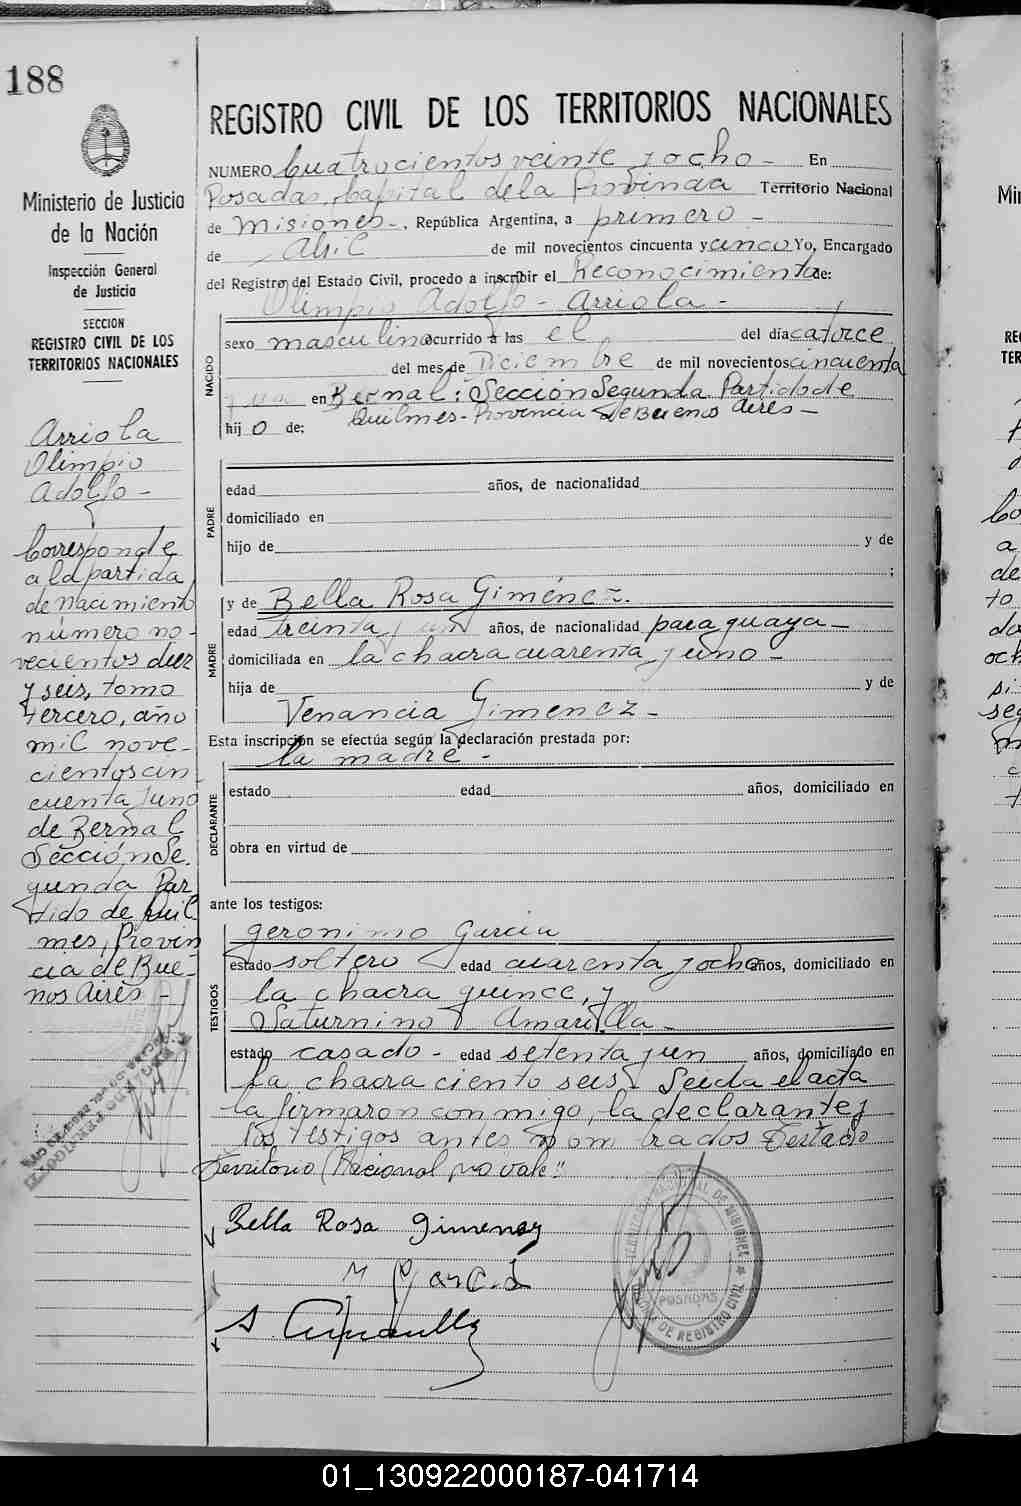 188
Ministerio de Justicia
de la Nación
Inspección General
de Justicia
SECCION
REGISTRO CIVIL DE LOS
TERRITORIOS NACIONALES
Arriola
Olimpio
Adolfo -
Corresponde
a la partida
de nacimiento
número no-
vecientos diez
y seis, tomo
tercero, año
mil nove-
cientos cin
cuenta y uno
de Bernal
Sección Se.
gunda Par
tido de Quil
mes, Provin
cia de Bue-
nos Aires -
REGISTRO CIVIL DE LOS TERRITORIOS NACIONALES
NUMERO Cuatrocientos veinte y ocho - En
Posadas, Capital de la Provincia Territorio Nacional
de Misiones -, República Argentina, a primero -
de Abril de mil novecientos cincuenta y cinco Yo, Encargado
del Registro del Estado Civil, procedo a inscribir el Reconocimiento de:
Olimpio Adolfo - Arriola -
NACIDO
sexo masculino ocurrido a las el del día catorce
del mes de Diciembre de mil novecientos cincuenta
y uno en Bernal: Sección Segunda Partido de
Quilmes - Provincia de Buenos Aires -
hij o de:
PADRE
edad años, de nacionalidad
domiciliado en
hijo de y de
;
MADRE
y de Bella Rosa Giménez.
edad treinta y un años, de nacionalidad paraguaya -
domiciliada en la chacra cuarenta y uno -
hija de y de
Venancia Gimenez -
Esta inscripción se efectúa según la declaración prestada por:
la madre -
DECLARANTE
estado edad años, domiciliado en
obra en virtud de
ante los testigos:
TESTIGOS
Geronimo Garcia
estado soltero edad cuarenta y ocho años, domiciliado en
la chacra quince, y
Saturnino Amarilla -
estado casado - edad setenta y un años, domiciliado en
la chacra ciento seis. Leida el acta
la firmaron conmigo, la declarante y
los testigos antes nombrados Testado
Territorio Nacional, no vale"
Bella Rosa Gimenez
Garcia
S Amarilla
TERRITORIO NACIONAL DE MISIONES
POSADAS
DE REGISTRO CIVIL
01_130922000187-041714